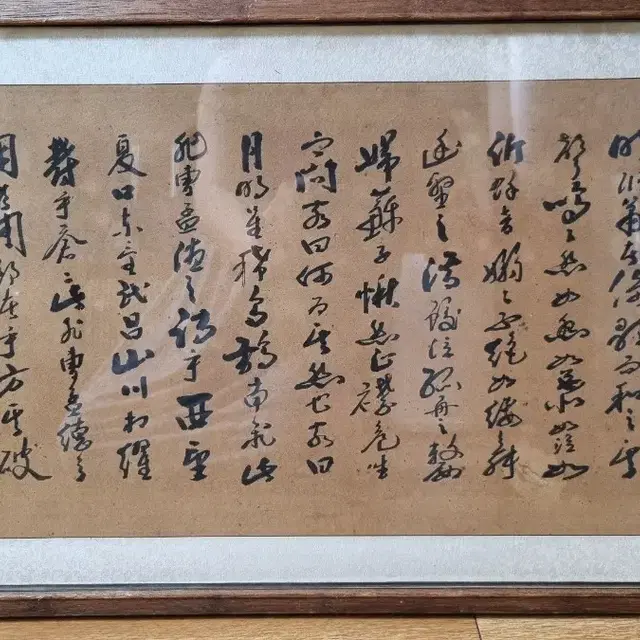 吹洞簫者倚歌而和之其
聲嗚々然如怨如慕如泣如
訴餘音嫋々不絕如縷舞
幽壑之潛蛟泣孤舟之嫠
婦蘇子愀然正襟危坐
而問客曰何為其然也客曰
月明星稀烏鵲南飛此
非曹孟德之詩乎西望
夏口東望武昌山川相繆
鬱乎蒼々此非曹孟德之
困於周郎者乎方其破